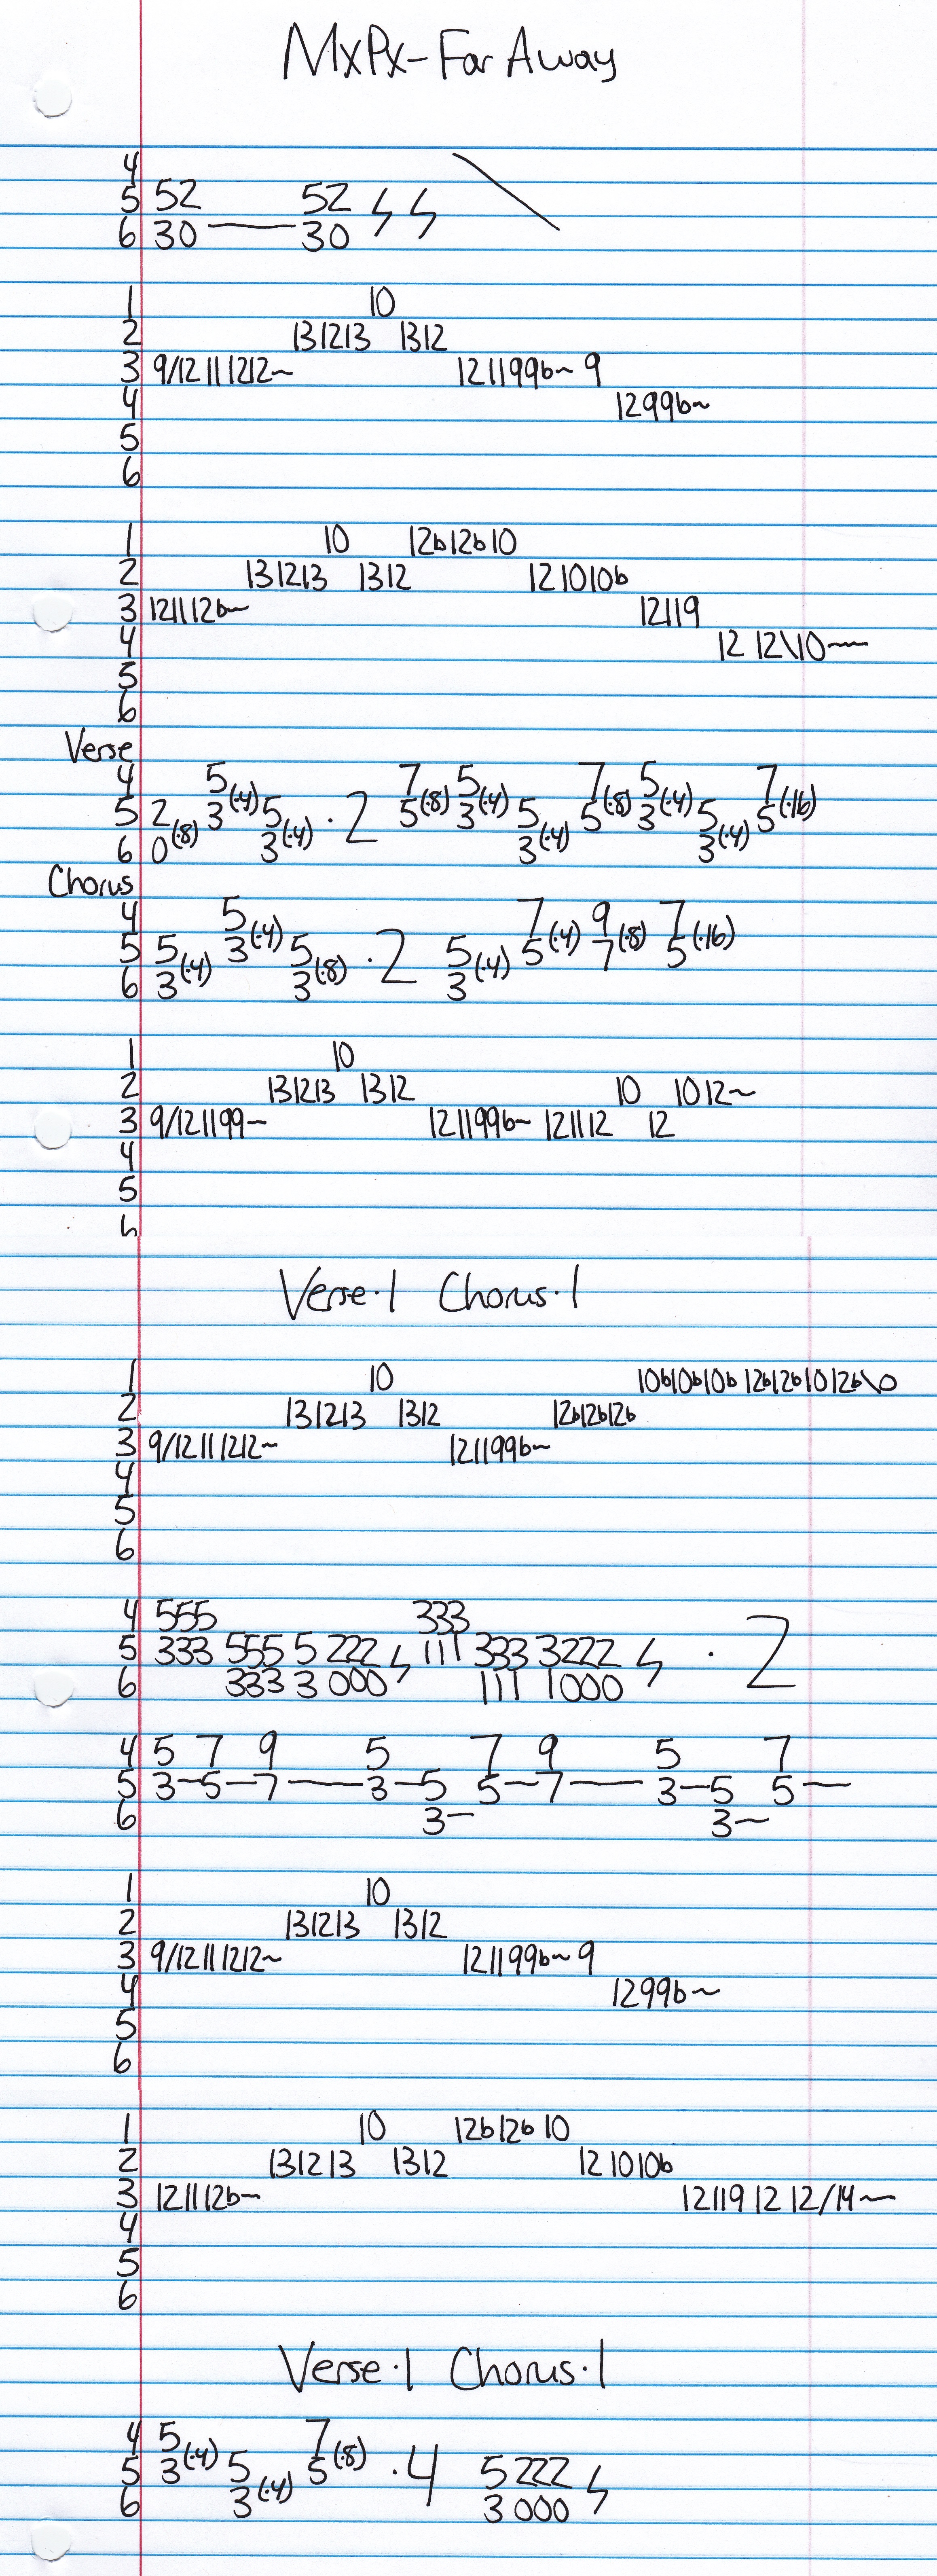 MxPx-Far Away
4
5 52 52
6 30 — 30
1 10
2 131213 1312
3 9/12 11 1212~ 121199b~ 9
4 1299b~
5
6
1 10 12b12b10
2 131213 1312 121010b
3 121112b~ 12119
4 12 12\10~
5
6
Verse
4 5 7 5 7 5 7
5 2(·8) 3(·4) 5 ·2 5(·8) 3(·4) 5 5(·8) 3(·4) 5 5(·16)
6 0 3(·4) 3(·4) 3(·4)
Chorus
4 5 7 9 7
5 5 3(·4) 5 ·2 5 5(·4) 7(·8) 5(·16)
6 3(·4) 3(·8) 3(·4)
1 10
2 131213 1312 10 1012~
3 9/121199~ 121199b~ 121112 12
4
5
6
Verse·1 Chorus·1
1 10 10b10b10b 12b12b1012b\0
2 131213 1312 12b12b12b
3 9/12 11 1212~ 121199b~
4
5
6
4 555 333
5 333 555 5 222 111 333 3222 ·2
6 333 3 000 111 1000
4 5 7 9 5 7 9 5 7
5 3~5—7——3—5 5—7——3—5 5—
6 3— 3~
1 10
2 131213 1312
3 9/12111212~ 121199b~9
4 1299b~
5
6
1 10 12b12b 10
2 131213 1312 121010b
3 121112b~ 12119 12 12/14~
4
5
6
Verse·1 Chorus·1
4 5 7
5 3(·4) 5 5(·8) ·4 5222
6 3(·4) 3000